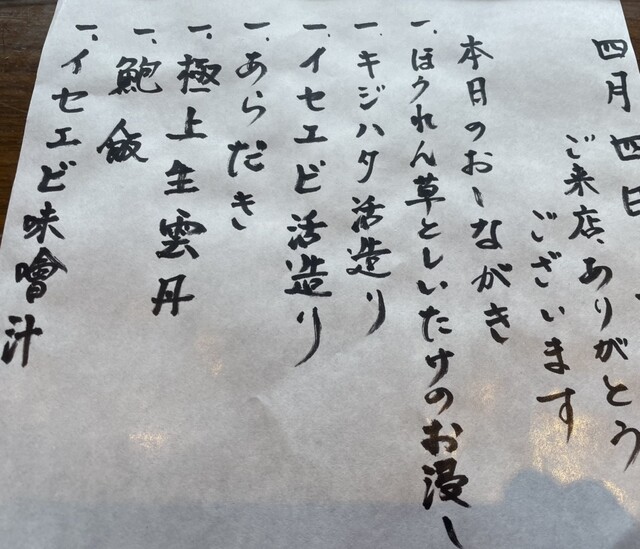 四月四日、
ご来店、ありがとう
ございます
本日のおしながき
一、ほうれん草としいたけのお浸し
一、キジハタ活造り
一、イセエビ活造り
一、あらだき
一、極上生雲丹
一、鮑飯
一、イセエビ味噌汁